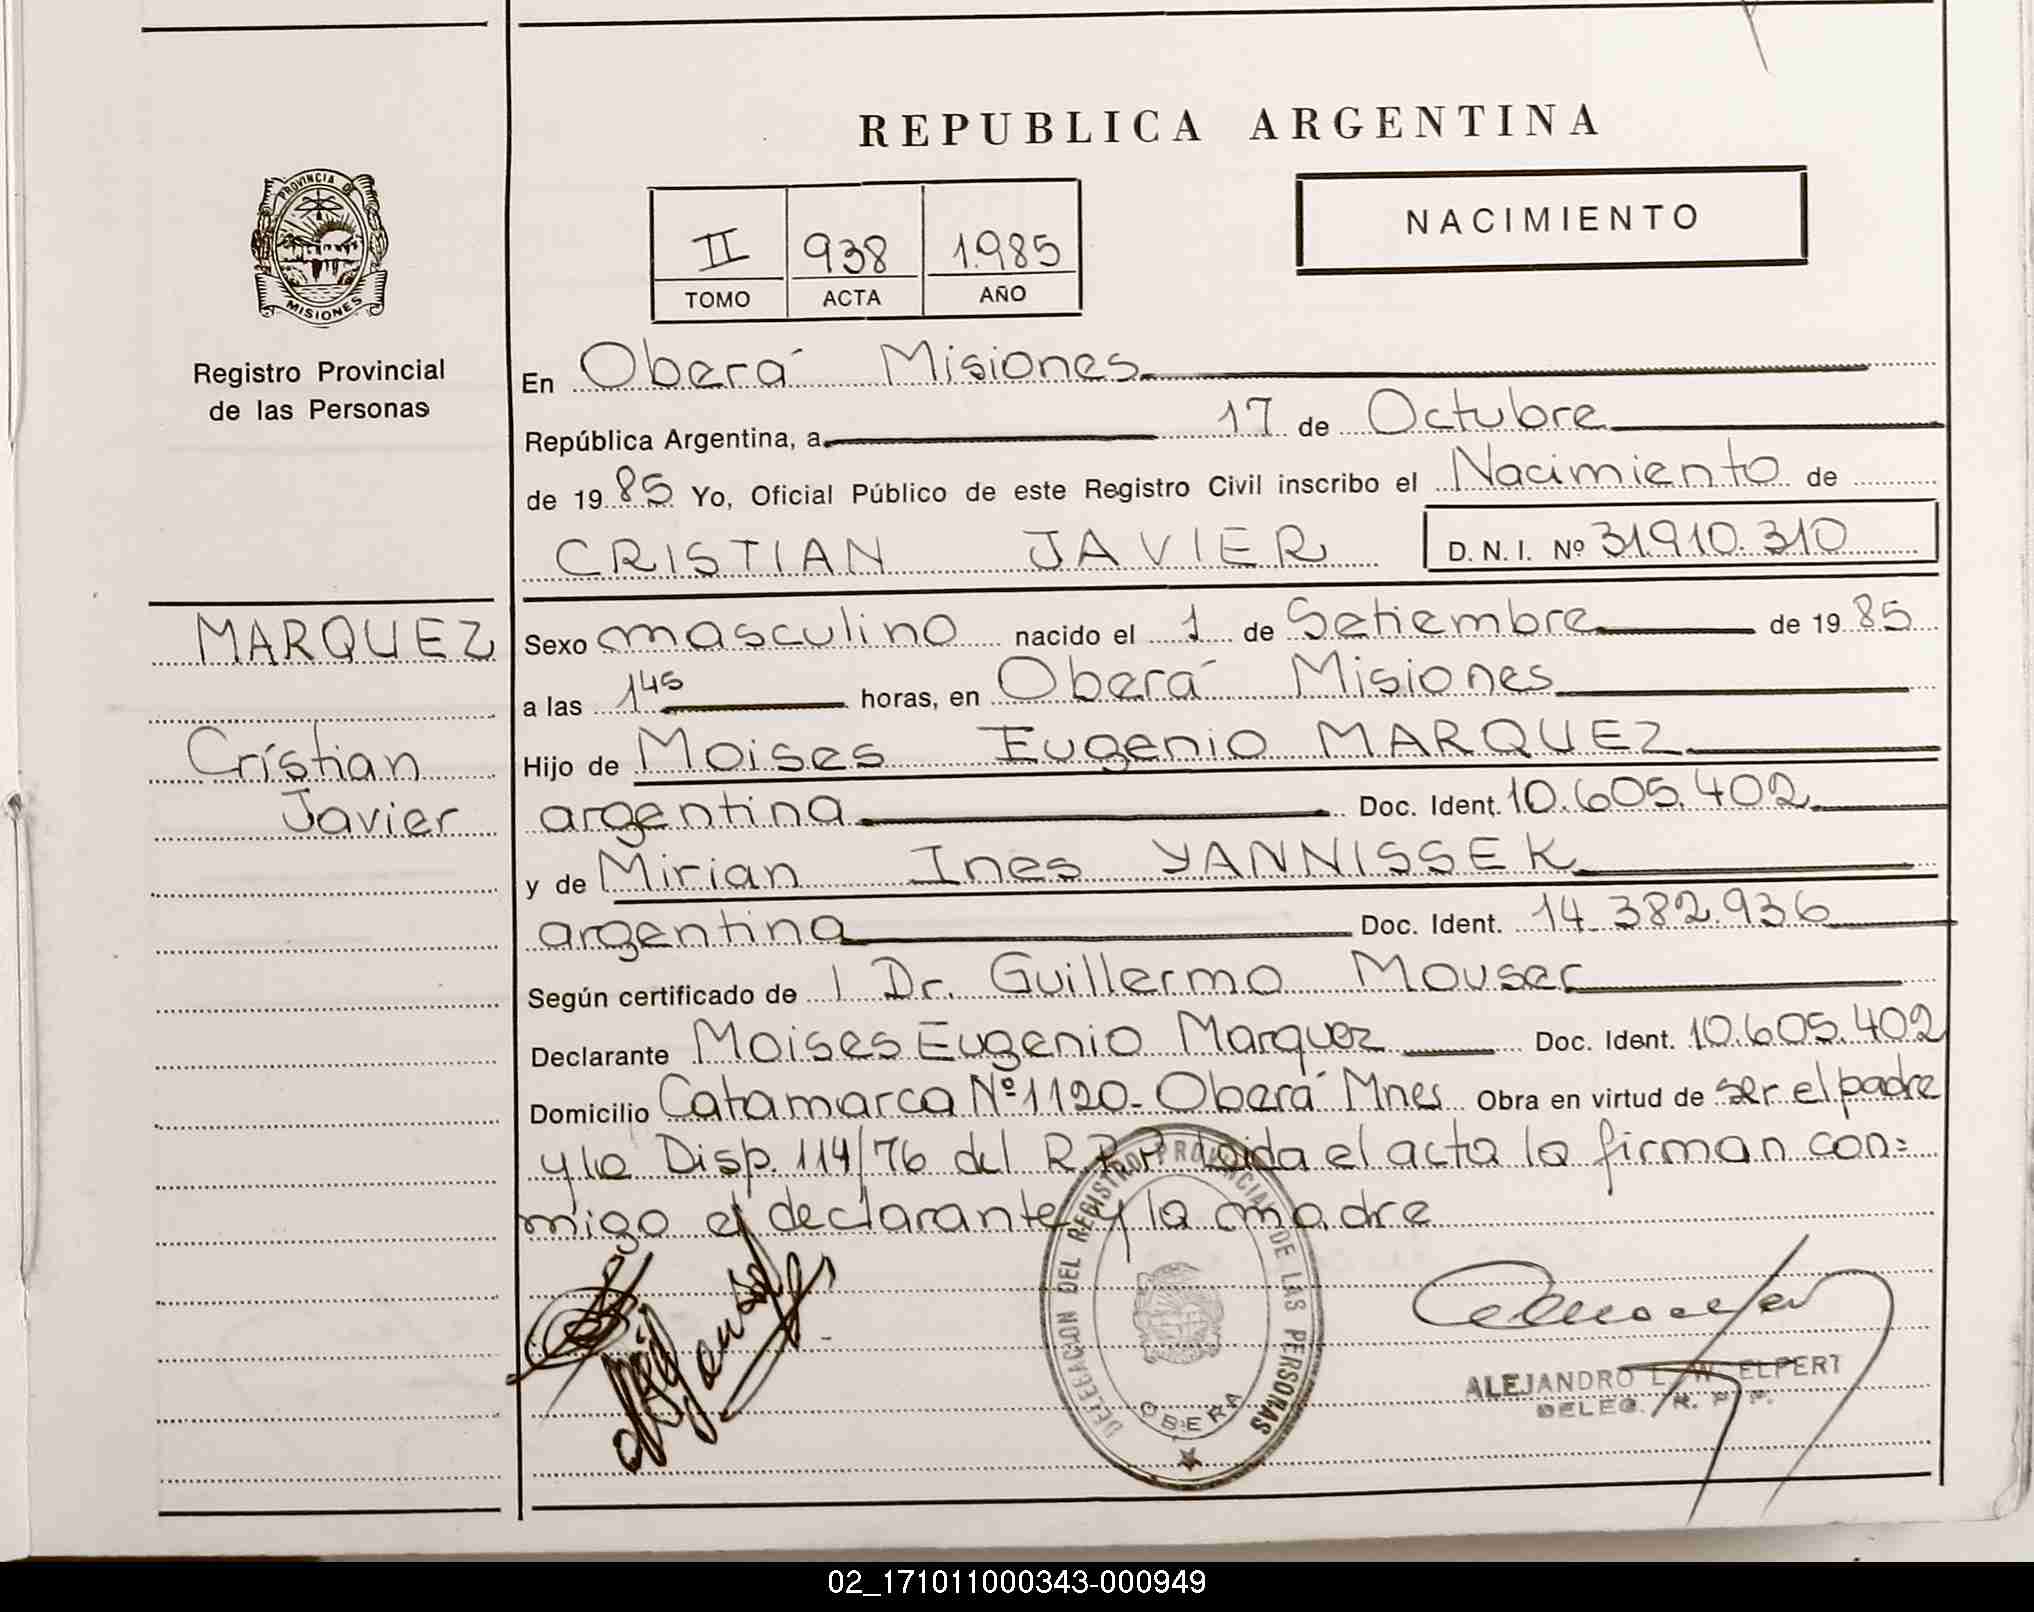 REPUBLICA ARGENTINA
PROVINCIA DE
MISIONES
Registro Provincial
de las Personas
II 938 1.985
TOMO ACTA AÑO
NACIMIENTO
En Oberá Misiones
República Argentina, a 17 de Octubre
de 19 85 Yo, Oficial Público de este Registro Civil inscribo el Nacimiento de
CRISTIAN JAVIER D. N. I. Nº 31.910.310
MARQUEZ
Cristian
Javier
Sexo masculino nacido el 1 de Setiembre de 19 85
a las 1 45 horas, en Oberá Misiones
Hijo de Moises Eugenio MARQUEZ
argentina Doc. Ident. 10.605.402
y de Mirian Ines YANNISSEK
argentina Doc. Ident. 14.382.936
Según certificado de Dr. Guillermo
Declarante Moises Eugenio Marquez Doc. Ident. 10.605.402
Domicilio Catamarca Nº 1120- Oberá Mnes Obra en virtud de ser el padre
y la Disp. 114/76 del R.P.P. Leida el acta la firman con=
migo el declarante y la madre
DELEGACION DEL REGISTRO PROVINCIAL DE LAS PERSONAS
OBERA
ALEJANDRO L. W. ELPERT
DELEG. R. P. P.
02_171011000343-000949